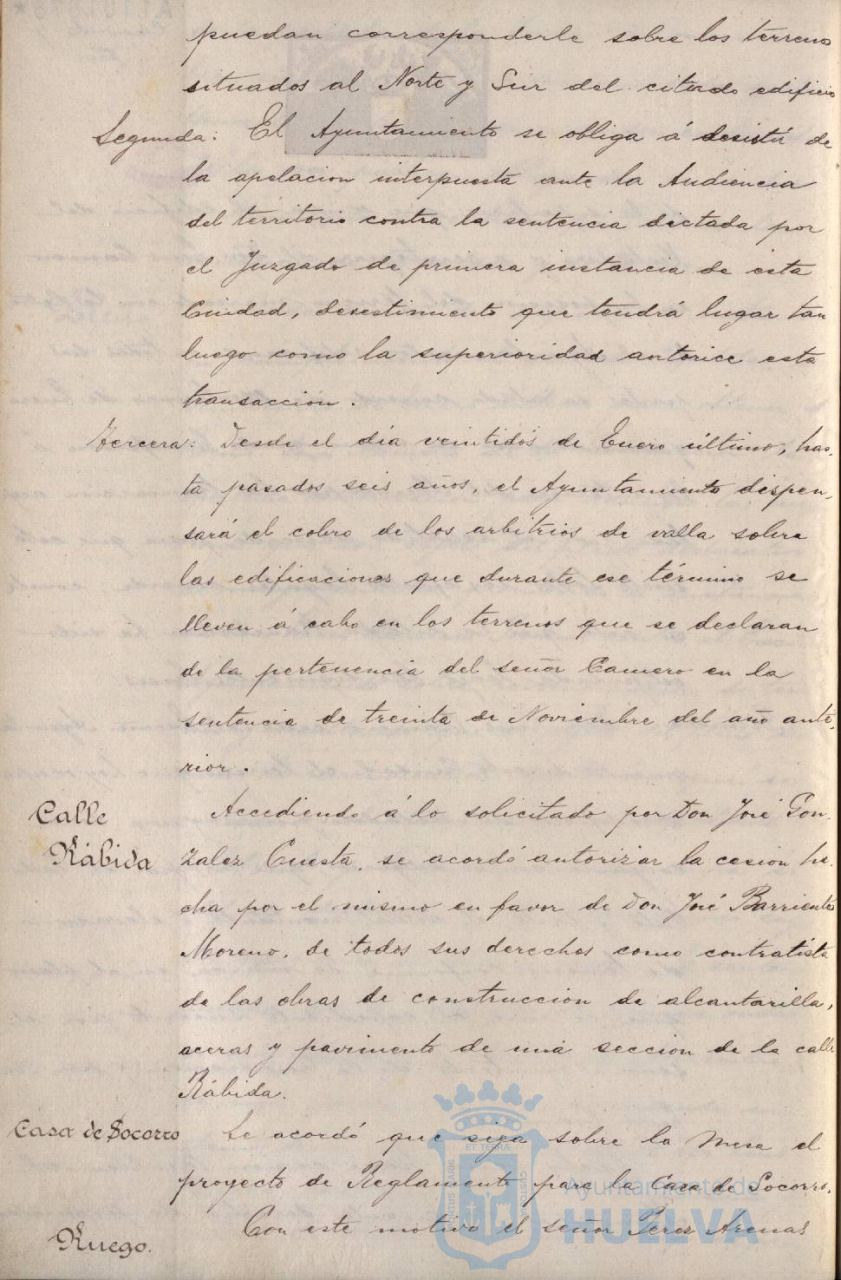 puedan corresponderle sobre los terrenos
situados al Norte y Sur del citado edificio
Segunda: El Ayuntamiento se obliga á desistir de
la apelacion interpuesta ante la Audiencia
del territorio contra la sentencia dictada por
el Juzgado de primera instancia de esta
Ciudad, desestimiento que tendrá lugar tan
luego como la superioridad autorice esta
transacción.
Tercera: Desde el día veintidós de Enero último, has-
ta pasados seis años, el Ayuntamiento dispen-
sará el cobro de los arbitrios de valla sobre
las edificaciones que durante ese término se
lleven á cabo en los terrenos que se declaran
de la pertenencia del señor Camero en la
sentencia de treinta de Noviembre del año ante-
rior.
Calle
Rábida
Accediendo á lo solicitado por Don José Gon-
zalez Cuesta, se acordó autorizar la cesion he-
cha por el mismo en favor de Don José Barrientos
Moreno, de todos sus derechos como contratista
de las obras de construccion de alcantarilla,
aceras y pavimento de una seccion de la calle
Rábida.
Casa de Socorro
Se acordó que siga sobre la Mesa el
proyecto de Reglamento para la Casa de Socorro.
Ruego.
Con este motivo el señor Perez Arenas
Ayuntamiento de
HUELVA